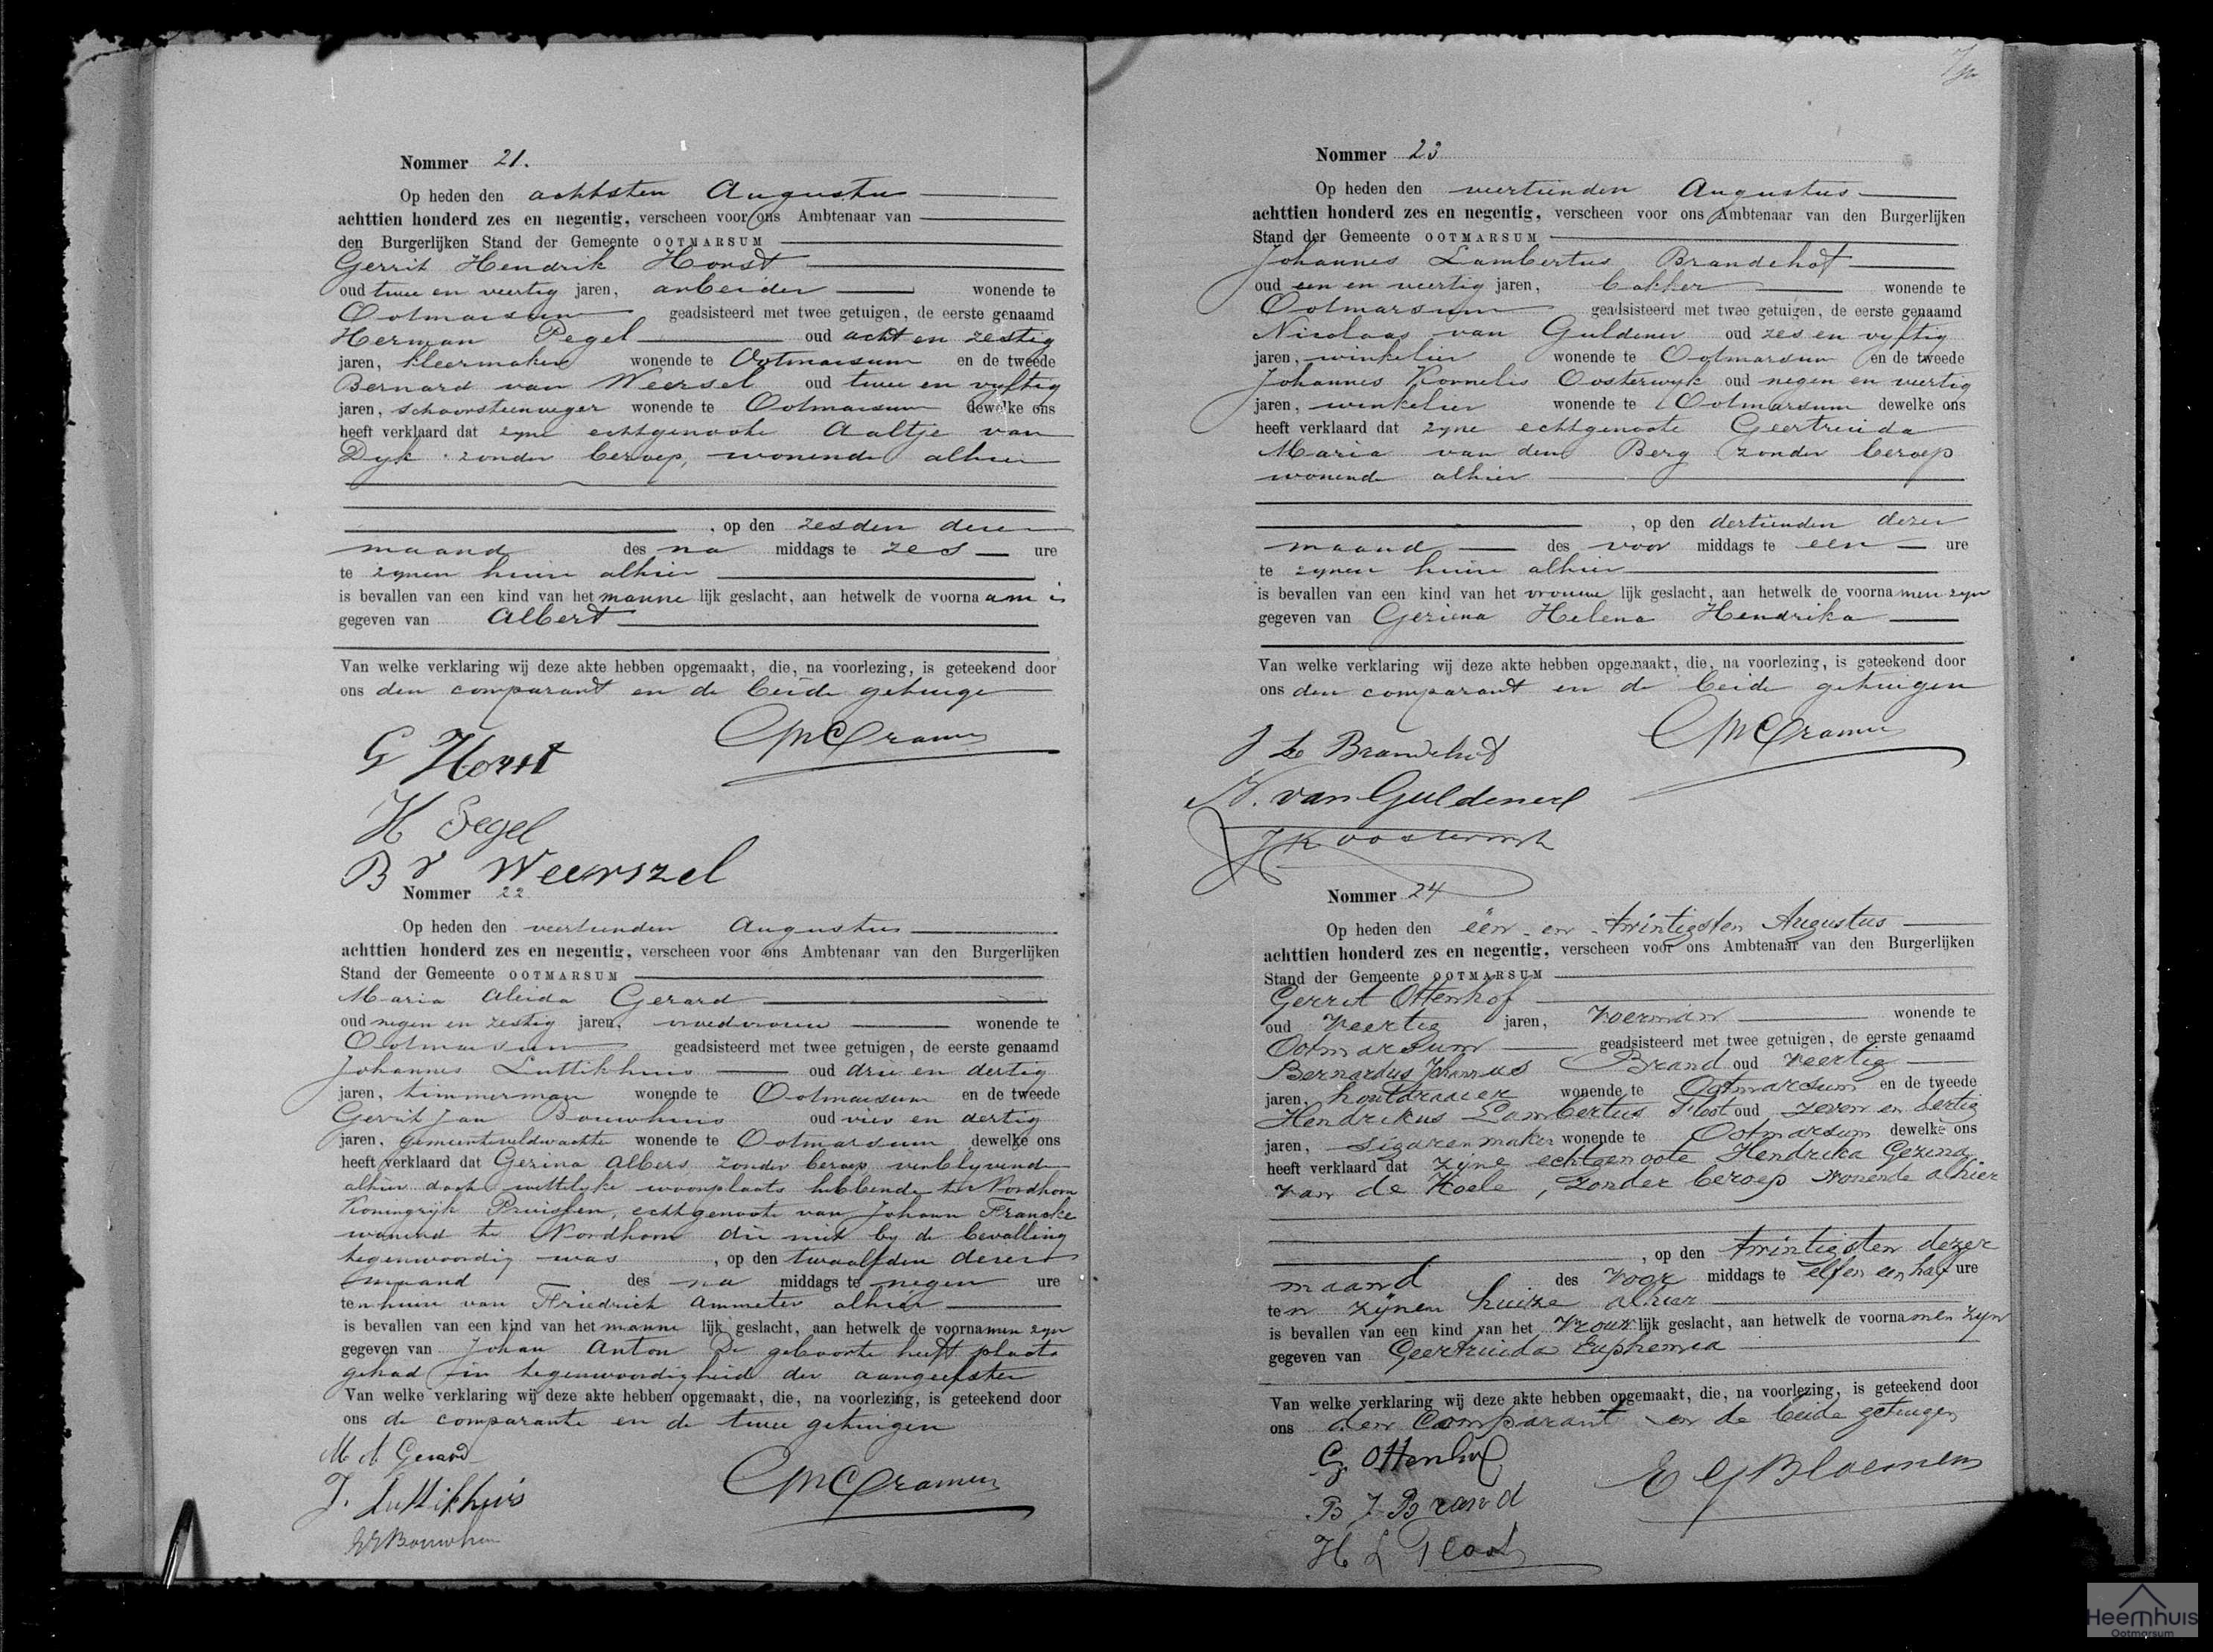 Nommer 21.
Op heden den achtsten Augustus
achttien honderd zes en negentig, verscheen voor ons Ambtenaar van
den Burgerlijken Stand der Gemeente OOTMARSUM
Gerrit Hendrik Horst
oud twee en veertig jaren, arbeider wonende te
Ootmarsum geadsisteerd met twee getuigen, de eerste genaamd
Herman Pegel oud acht en zestig
jaren, kleermaker wonende te Ootmarsum en de tweede
Bernard van Weersel oud twee en vyftig
jaren, schoorsteenveger wonende te Ootmarsum dewelke ons
heeft verklaard dat zyne echtgenoote Aaltje van
Dyk zonder beroep, wonende alhier
, op den zesden dezer
maand des na middags te zes ure
te zynen huize alhier
is bevallen van een kind van het manne lijk geslacht, aan hetwelk de voorna am is
gegeven van Albert
Van welke verklaring wij deze akte hebben opgemaakt, die, na voorlezing, is geteekend door
ons den comparant en de beide getuige
G Horst
H Pegel
B v Weerszel
Nommer 22
Op heden den veertienden Augustus
achttien honderd zes en negentig, verscheen voor ons Ambtenaar van den Burgerlijken
Stand der Gemeente OOTMARSUM
Maria Aleida Gerard
oud negen en zestig jaren, vroedvrouw wonende te
Ootmarsum geadsisteerd met twee getuigen, de eerste genaamd
Johannes Luttikhuis oud drie en dertig
jaren, timmerman wonende te Ootmarsum en de tweede
Gerrit Jan Bouwhuis oud vier en dertig
jaren, gemeenteveldwachter wonende te Ootmarsum dewelke ons
heeft verklaard dat Gerina Albers zonder beroep verblyvende
alhier doch wettelyke woonplaats hebbende te Nordhorn
Koningryk Pruissen, echtgenoote van Johann Francke
wonend te Nordhorn die niet by de bevalling
tegenwoordig was, op den twaalfden dezer
maand des na middags te negen ure
ten huize van Friedrich Ammeter alhier
is bevallen van een kind van het manne lijk geslacht, aan hetwelk de voorna men zyn
gegeven van Johan Anton De geboorte heeft plaats
gehad in tegenwoordigheid der aangeefster
Van welke verklaring wij deze akte hebben opgemaakt, die, na voorlezing, is geteekend door
ons de comparante en de twee getuigen
M A Gerard
J. Luttikhuis
GJBouwhuis
Nommer 23
Op heden den veertienden Augustus
achttien honderd zes en negentig, verscheen voor ons Ambtenaar van den Burgerlijken
Stand der Gemeente OOTMARSUM
Johannes Lambertus Brandehof
oud een en veertig jaren, bakker wonende te
Ootmarsum geadsisteerd met twee getuigen, de eerste genaamd
Nicolaas van Guldener oud zes en vyftig
jaren, winkelier wonende te Ootmarsum en de tweede
Johannes Kornelis Oosterwyk oud negen en veertig
jaren, winkelier wonende te Ootmarsum dewelke ons
heeft verklaard dat zyne echtgenoote Geertruida
Maria van den Berg zonder beroep
wonende alhier
, op den dertienden dezer
maand des voor middags te een ure
te zynen huize alhier
is bevallen van een kind van het vrouwe lijk geslacht, aan hetwelk de voorna men zyn
gegeven van Geziena Helena Hendrika
Van welke verklaring wij deze akte hebben opgemaakt, die, na voorlezing, is geteekend door
ons den comparant en de beide getuigen
J L Brandehof
N. van Guldener
JK Oosterwyk
Nommer 24
Op heden den één en twintigsten Augustus
achttien honderd zes en negentig, verscheen voor ons Ambtenaar van den Burgerlijken
Stand der Gemeente OOTMARSUM
Gerrit Ottenhof
oud veertig jaren, voerman wonende te
Ootmarsum geadsisteerd met twee getuigen, de eerste genaamd
Bernardus Johannus Brand oud veertig
jaren, houtdraaier wonende te Ootmarsum en de tweede
Hendrikus Lambertus Sloot oud zeven en dertig
jaren, sigarenmaker wonende te Ootmarsum dewelke ons
heeft verklaard dat zijne echtgenoote Hendrika Gezina
van de Koele, zonder beroep wonende alhier
, op den twintigsten dezer
maand des voor middags te elf en een half ure
te n zijnen huize alhier
is bevallen van een kind van het vrouw lijk geslacht, aan hetwelk de voorna men zyn
gegeven van Geertruida Euphemia
Van welke verklaring wij deze akte hebben opgemaakt, die, na voorlezing, is geteekend door
ons den Comparant en de beide getuigen
G. Ottenhof
E G Bloemen
B J Brand
H L Sloot
Heemhuis
Ootmarsum